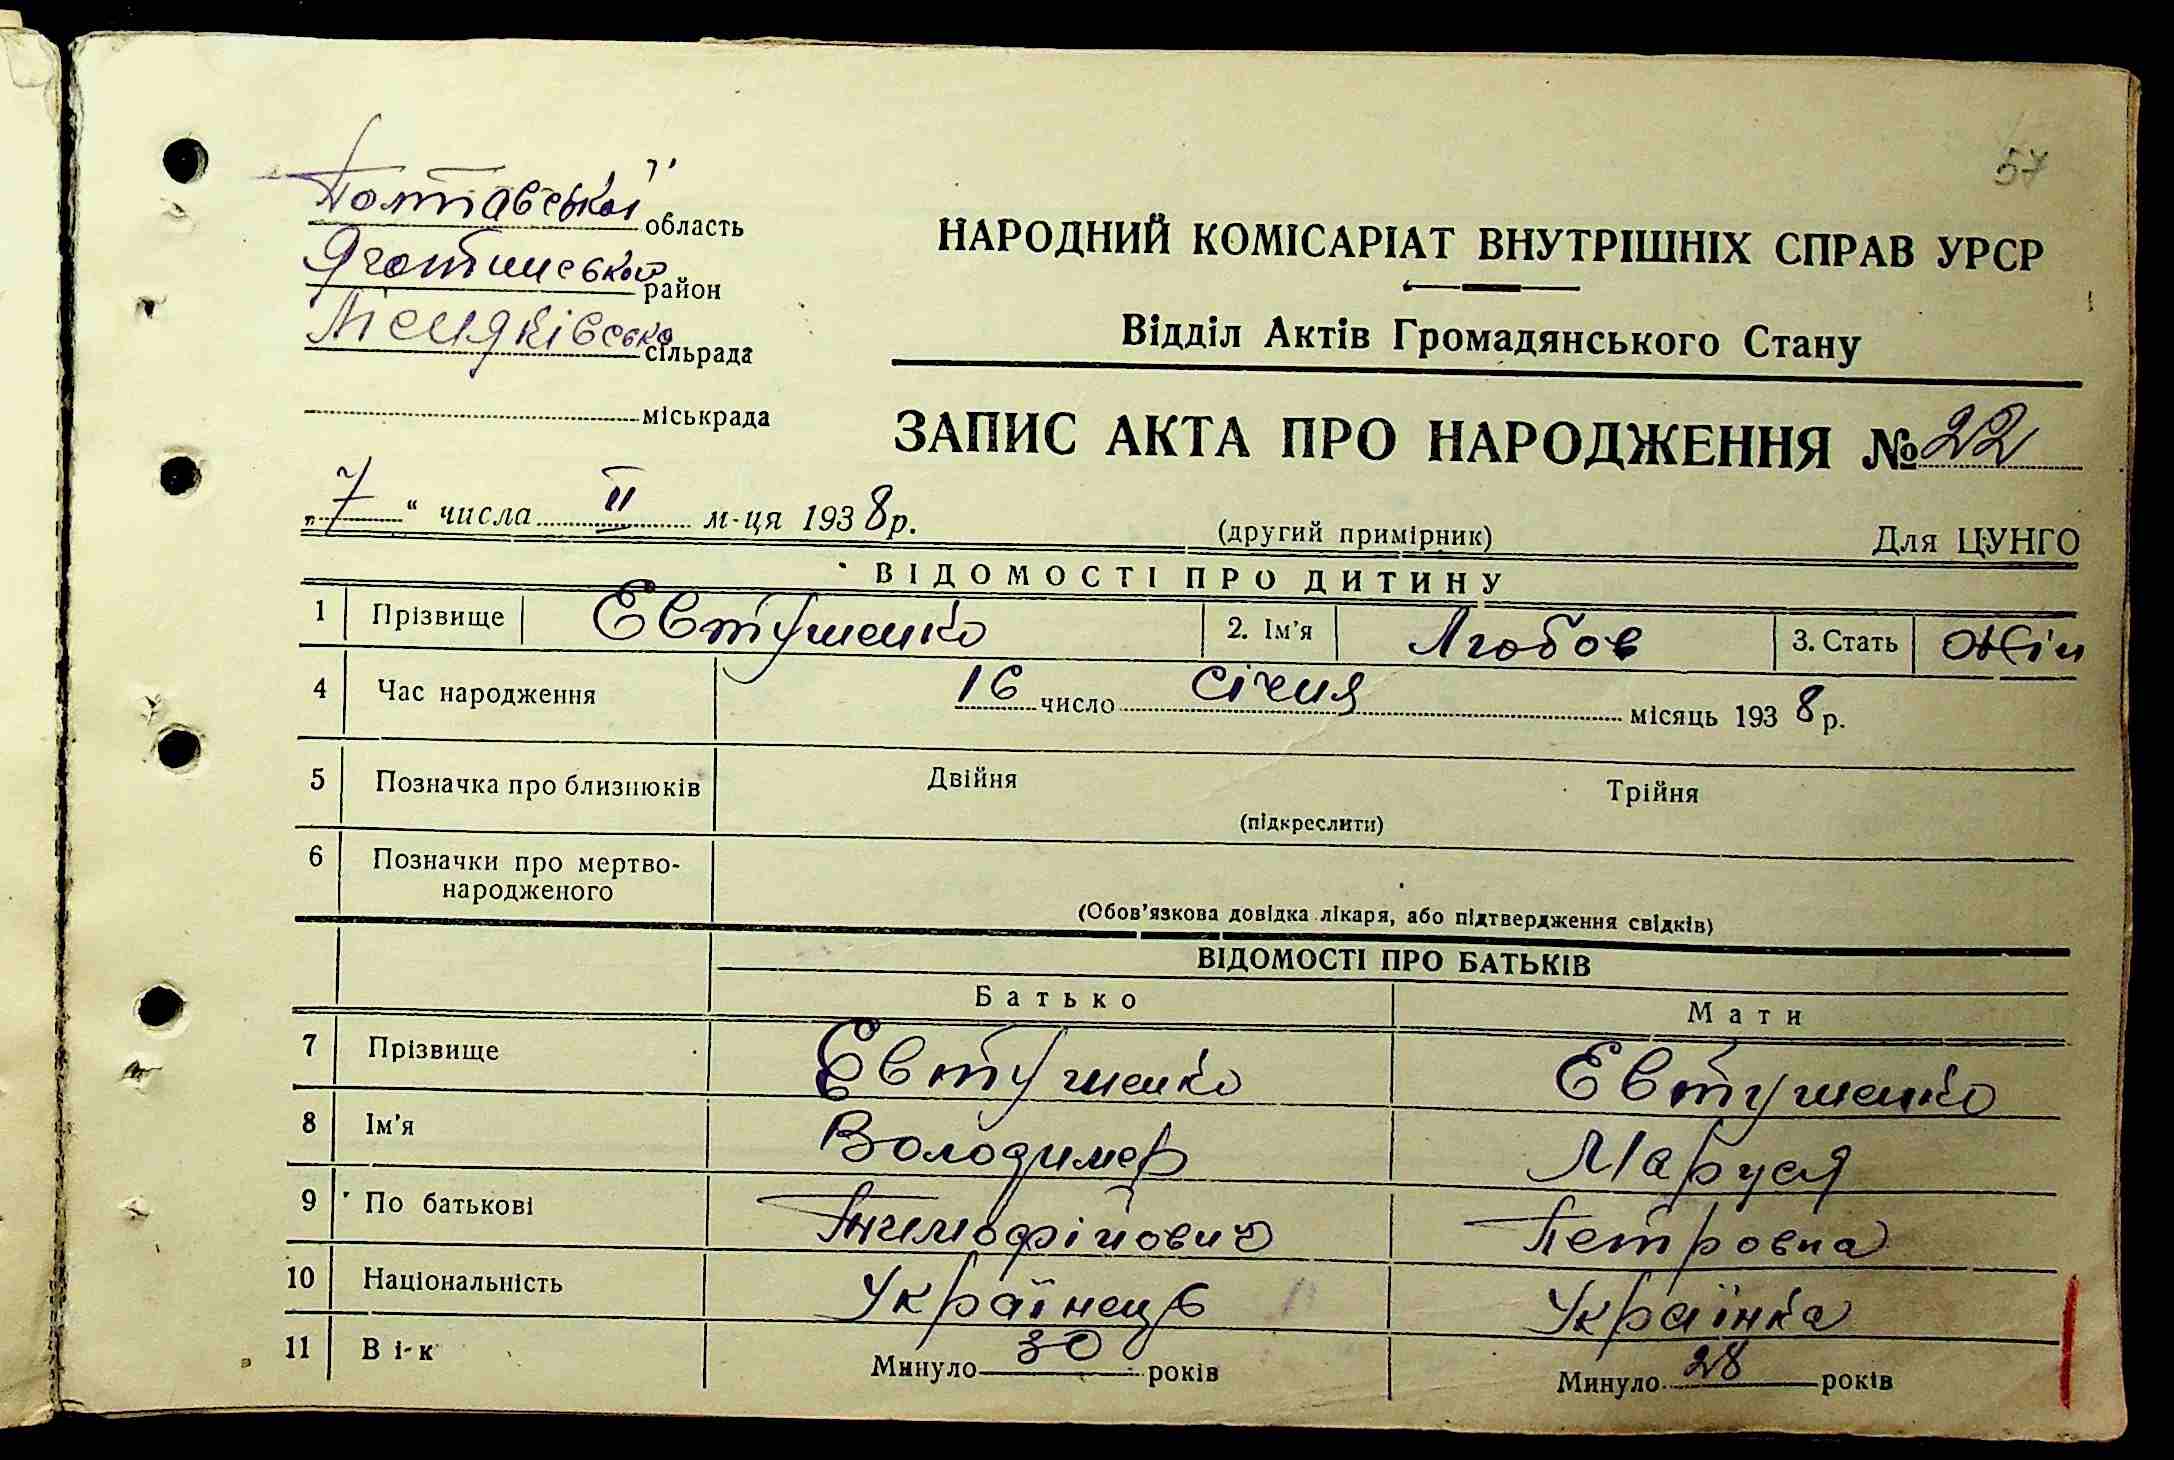 57
Полтавської область
Яготинської район
Лісняківська сільрада
міськрада
НАРОДНИЙ КОМІСАРІАТ ВНУТРІШНІХ СПРАВ УРСР
Відділ Актів Громадянського Стану
ЗАПИС АКТА ПРО НАРОДЖЕННЯ № 22
„7“ числа II м-ця 1938р.
(другий примірник) Для ЦУНГО
ВІДОМОСТІ ПРО ДИТИНУ
1 Прізвище Евтушенко 2. Ім'я Любов 3. Стать жін
4 Час народження 16 число січня місяць 1938р.
5 Позначка про близнюків Двійня Трійня
(підкреслити)
6 Позначки про мертво-
народженого
(Обов'язкова довідка лікаря, або підтвердження свідків)
ВІДОМОСТІ ПРО БАТЬКІВ
Батько Мати
7 Прізвище Евтушенко Евтушенко
8 Ім'я Володимер Маруся
9 По батькові Тимофійович Петровна
10 Національність Українець Українка
11 Ві-к Минуло 30 років Минуло 28 років